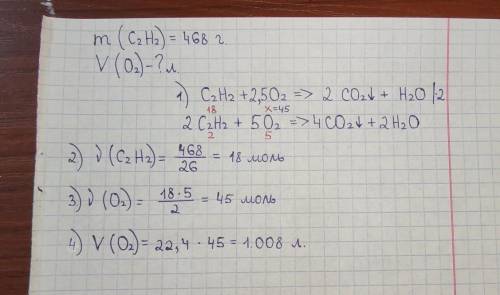 m (C₂H₂) = 468 г.
V (O₂) - ? л.
1) C₂H₂ + 2,5O₂ => 2 CO₂↓ + H₂O |·2
18 x=45
2 C₂H₂ + 5O₂ => 4CO₂↓ + 2H₂O
2 5
2) ν (C₂H₂) = 468/26 = 18 моль
3) ν (O₂) = 18·5/2 = 45 моль
4) V (O₂) = 22,4 · 45 = 1.008 л.